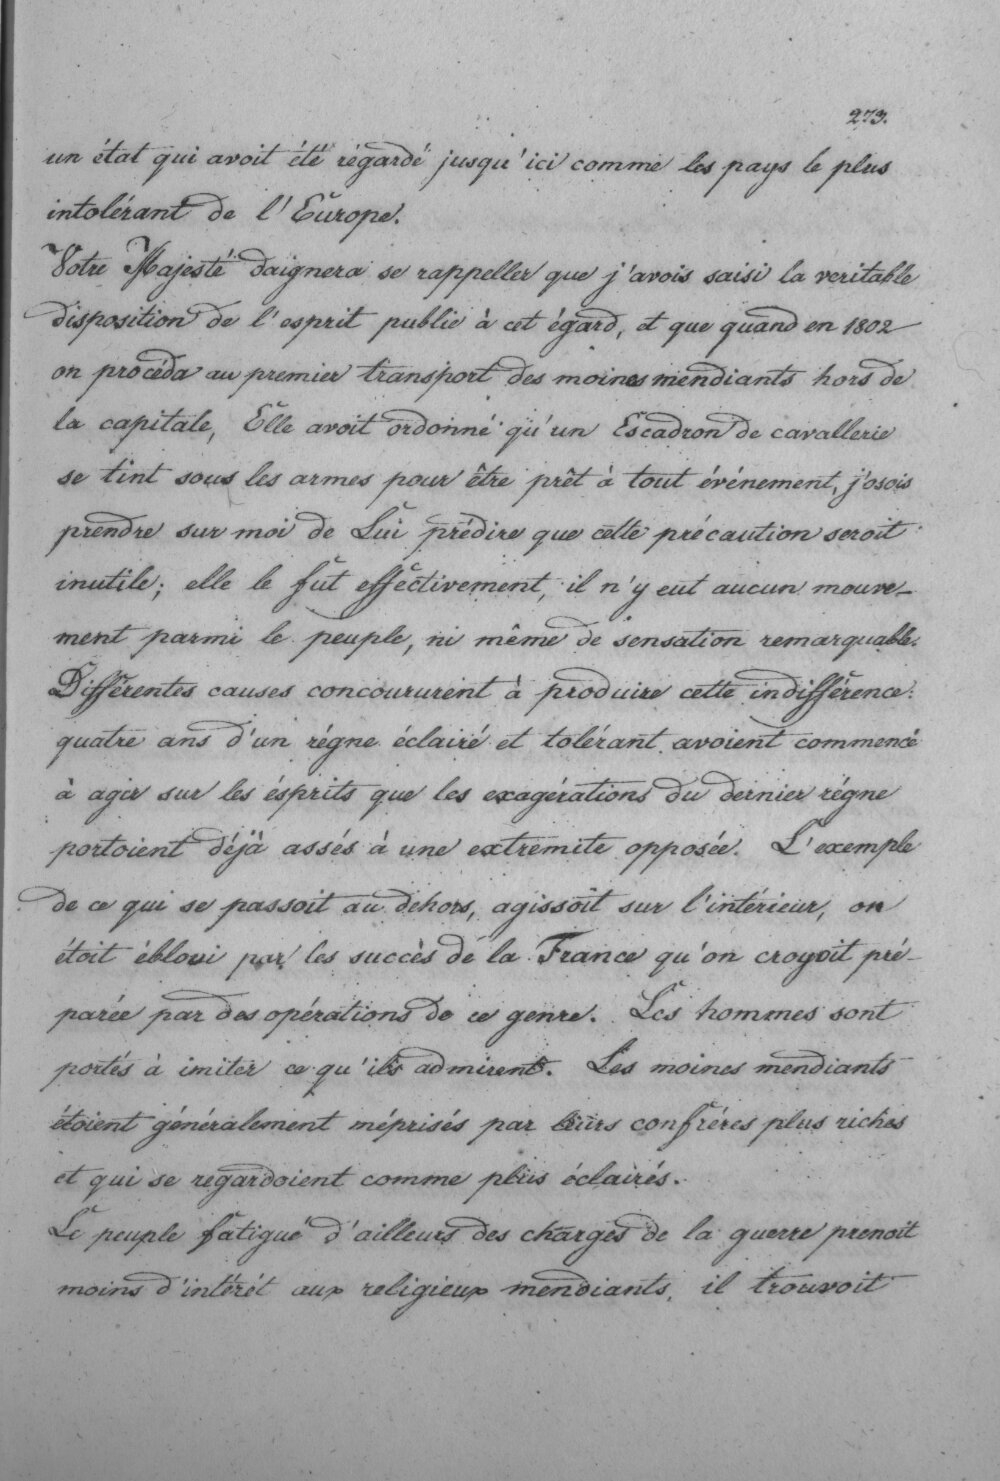 273.
un état qui avoit été régardé jusqu'ici comme les pays le plus
intolérant de l'Europe.
Votre Majesté daignera se rappeller que j'avois saisi la veritable
disposition de l'esprit public à cet égard, et que quand en 1802
on procéda au premier transport des moines mendiants hors de
la capitale, Elle avoit ordonné qu'un Escadron de cavallerie
se tint sous les armes pour être prêt à tout événement, j'osois
prendre sur moi de Lui prédire que cette précaution seroit
inutile; elle le fut effectivement, il n'y eut aucun mouve-
ment parmi le peuple, ni même de sensation remarquable.
Différentes causes concoururent à produire cette indifférence:
quatre ans d'un régne éclairé et tolérant avoient commencé
à agir sur les ésprits que les exagérations du dernier régne
portoient déjà assés à une extremite opposée. L'exemple
de ce qui se passoit au dehors, agissoit sur l'intérieur, on
étoit ébloui par les succès de la France qu'on croyoit pré-
parée par des opérations de ce genre. Les hommes sont
portés à imiter ce qu'ils admirent. Les moines mendiants
étoient généralement méprisés par leurs confréres plus riches
et qui se regardoient comme plus éclairés.
Le peuple fatigué d'ailleurs des charges de la guerre prenoit
moins d'intérét aux religieux mendiants, il trouvoit